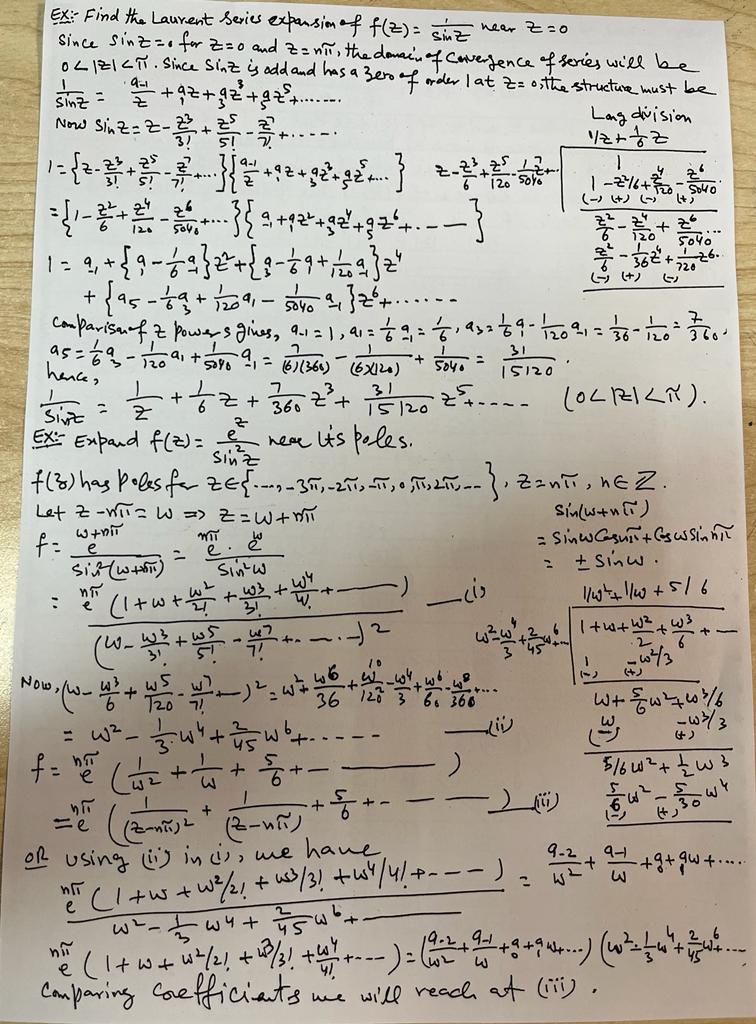 EX:- Find the Laurent Series expansion of f(z) = 1/Sinz near z=0
Since Sinz=0 for z=0 and z=nπ, the domain of Convergence of series will be
0<|z|<π. Since Sinz is odd and has a zero of order 1 at z=0, the structure must be
1/Sinz = a₋₁/z + a₁z + a₃z³ + a₅z⁵ + ......
Now Sinz = z - z³/3! + z⁵/5! - z⁷/7! + ......
1 = {z - z³/3! + z⁵/5! - z⁷/7! + ...}{a₋₁/z + a₁z + a₃z³ + a₅z⁵ + ...}
= {1 - z²/6 + z⁴/120 - z⁶/5040 + ...}{a₋₁ + a₁z² + a₃z⁴ + a₅z⁶ + .. — — }
1 = a₋₁ + {a₁ - 1/6 a₋₁}z² + {a₃ - 1/6 a₁ + 1/120 a₋₁}z⁴
+ {a₅ - 1/6 a₃ + 1/120 a₁ - 1/5040 a₋₁}z⁶ + ......
Long division
1/z + 1/6 z
z - z³/6 + z⁵/120 - z⁷/5040 + ..
1
1 - z²/6 + z⁴/120 - z⁶/5040
(-) (+) (-) (+)
z²/6 - z⁴/120 + z⁶/5040 ...
z²/6 - 1/36 z⁴ + 1/720 z⁶..
(-) (+) (-)
Comparison of z powers gives, a₋₁ = 1, a₁ = 1/6 a₋₁ = 1/6, a₃ = 1/6 a₁ - 1/120 a₋₁ = 1/36 - 1/120 = 7/360,
a₅ = 1/6 a₃ - 1/120 a₁ + 1/5040 a₋₁ = 7/(6)(360) - 1/(6x120) + 1/5040 = 31/15120.
hence,
1/Sinz = 1/z + 1/6 z + 7/360 z³ + 31/15120 z⁵ + ..... (0<|z|<π).
EX:- Expand f(z) = e^z/Sin²z near its poles.
f(z) has Poles for z∈{----, -3π, -2π, -π, 0, π, 2π, --- }, z=nπ, n∈ℤ.
Let z-nπ = w ⇒ z = w+nπ
f = e^(w+nπ)/Sin²(w+nπ) = e^nπ . e^w/Sin²w
= e^nπ (1 + w + w²/2! + w³/3! + w⁴/4! + — — )/(w - w³/3! + w⁵/5! - w⁷/7! + .. — . -)² —(i)
Sin(w+nπ)
= Sinw Cosnπ + Cosw Sin nπ
= ± Sinw.
Now, (w - w³/6 + w⁵/120 - w⁷/7! + —)² = w² + w⁶/36 + w¹⁰/120² - w⁴/3 + w⁶/60 - w⁸/360 + ...
= w² - 1/3 w⁴ + 2/45 w⁶ + ..... —(ii)
f = e^nπ (1/w² + 1/w + 5/6 + - — — — )
= e^nπ (1/(z-nπ)² + 1/(z-nπ) + 5/6 + - — — — ) —(iii)
1/w² + 1/w + 5/6
w² - w⁴/3 + 2/45 w⁶ ..
1 + w + w²/2 + w³/6 + —
1 - w²/3
(-) (+)
w + 5/6 w² + w³/6
w - w³/3
(-) (+)
5/6 w² + 1/2 w³
5/6 w² - 5/30 w⁴
(-) (+)
OR using (ii) in (i), we have
e^nπ (1 + w + w²/2! + w³/3! + w⁴/4! + ---- )/(w² - 1/3 w⁴ + 2/45 w⁶ + ----) = a₋₂/w² + a₋₁/w + a₀ + a₁w + ....
e^nπ (1 + w + w²/2! + w³/3! + w⁴/4! + ---) = (a₋₂/w² + a₋₁/w + a₀ + a₁w + ...) (w² - 1/3 w⁴ + 2/45 w⁶ + ...
Comparing Coefficients we will reach at (iii).